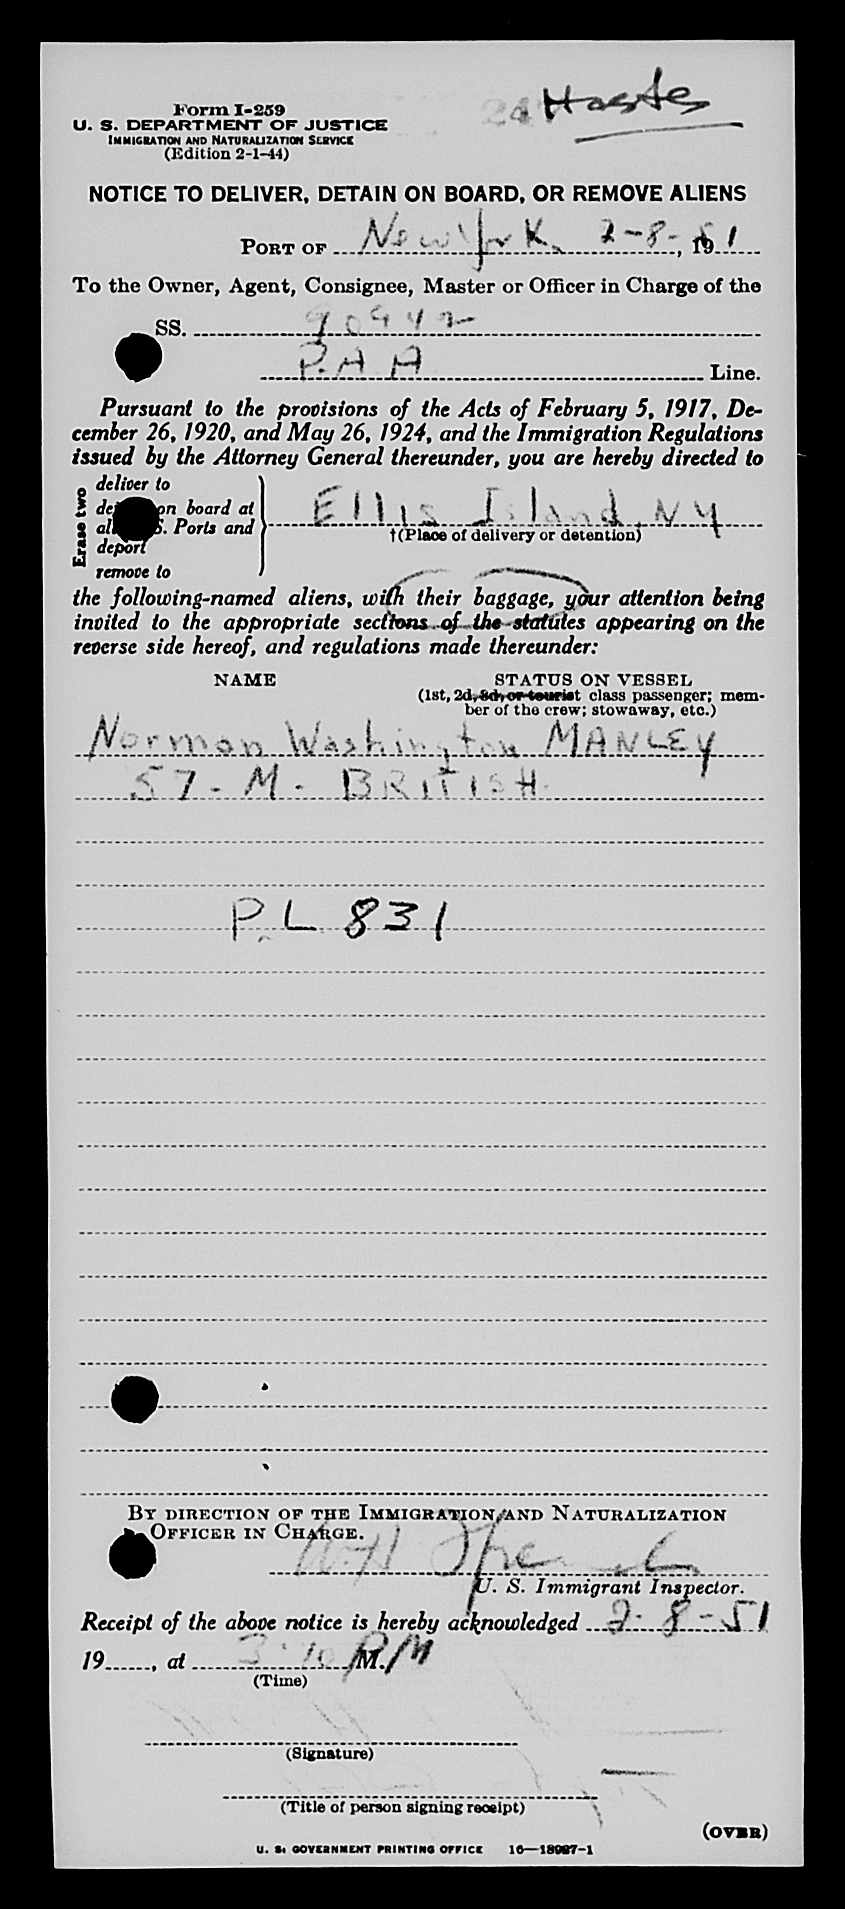 Hastes
Form I-259
U. S. DEPARTMENT OF JUSTICE
IMMIGRATION AND NATURALIZATION SERVICE
(Edition 2-1-44)
NOTICE TO DELIVER, DETAIN ON BOARD, OR REMOVE ALIENS
PORT OF New York, 2-8-, 1951
To the Owner, Agent, Consignee, Master or Officer in Charge of the
SS. 90942
P.A A Line.
Pursuant to the provisions of the Acts of February 5, 1917, De-
cember 26, 1920, and May 26, 1924, and the Immigration Regulations
issued by the Attorney General thereunder, you are hereby directed to
Erase two
deliver to
on board at
S. Ports and
deport
remove to
Ellis Island, NY
†(Place of delivery or detention)
the following-named aliens, with their baggage, your attention being
invited to the appropriate sections of the statutes appearing on the
reverse side hereof, and regulations made thereunder:
NAME STATUS ON VESSEL
(1st, 2d, 3d, or tourist class passenger; mem-
ber of the crew; stowaway, etc.)
Norman Washington MANLEY
57 - M - BRITISH.
P.L 831
BY DIRECTION OF THE IMMIGRATION AND NATURALIZATION
OFFICER IN CHARGE.
U. S. Immigrant Inspector.
Receipt of the above notice is hereby acknowledged 2-8-51
19......, at 3:10 PM M.
(Time)
(Signature)
(Title of person signing receipt)
(OVER)
U. S. GOVERNMENT PRINTING OFFICE 16—18987-1